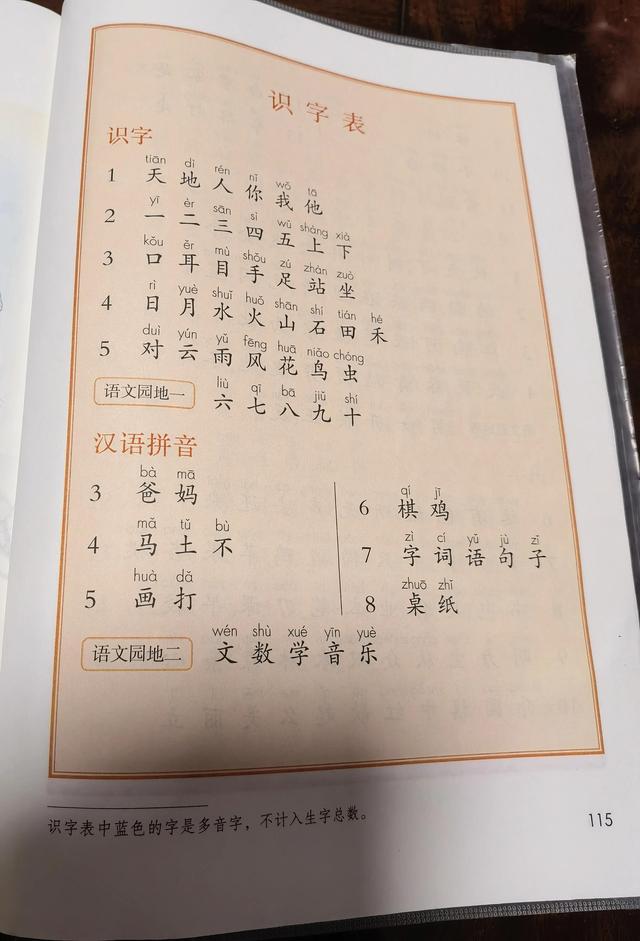 识字表
识字
tiān dì rén nǐ wǒ tā
1 天 地 人 你 我 他
yī èr sān sì wǔ shàng xià
2 一 二 三 四 五 上 下
kǒu ěr mù shǒu zú zhàn zuò
3 口 耳 目 手 足 站 坐
rì yuè shuǐ huǒ shān shí tián hé
4 日 月 水 火 山 石 田 禾
duì yún yǔ fēng huā niǎo chóng
5 对 云 雨 风 花 鸟 虫
liù qī bā jiǔ shí
语文园地一 六 七 八 九 十
汉语拼音
bà mā
3 爸 妈
mǎ tǔ bù
4 马 土 不
huà dǎ
5 画 打
qí jī
6 棋 鸡
zì cí yǔ jù zǐ
7 字 词 语 句 子
zhuō zhǐ
8 桌 纸
wén shù xué yīn yuè
语文园地二 文 数 学 音 乐
识字表中蓝色的字是多音字，不计入生字总数。
115